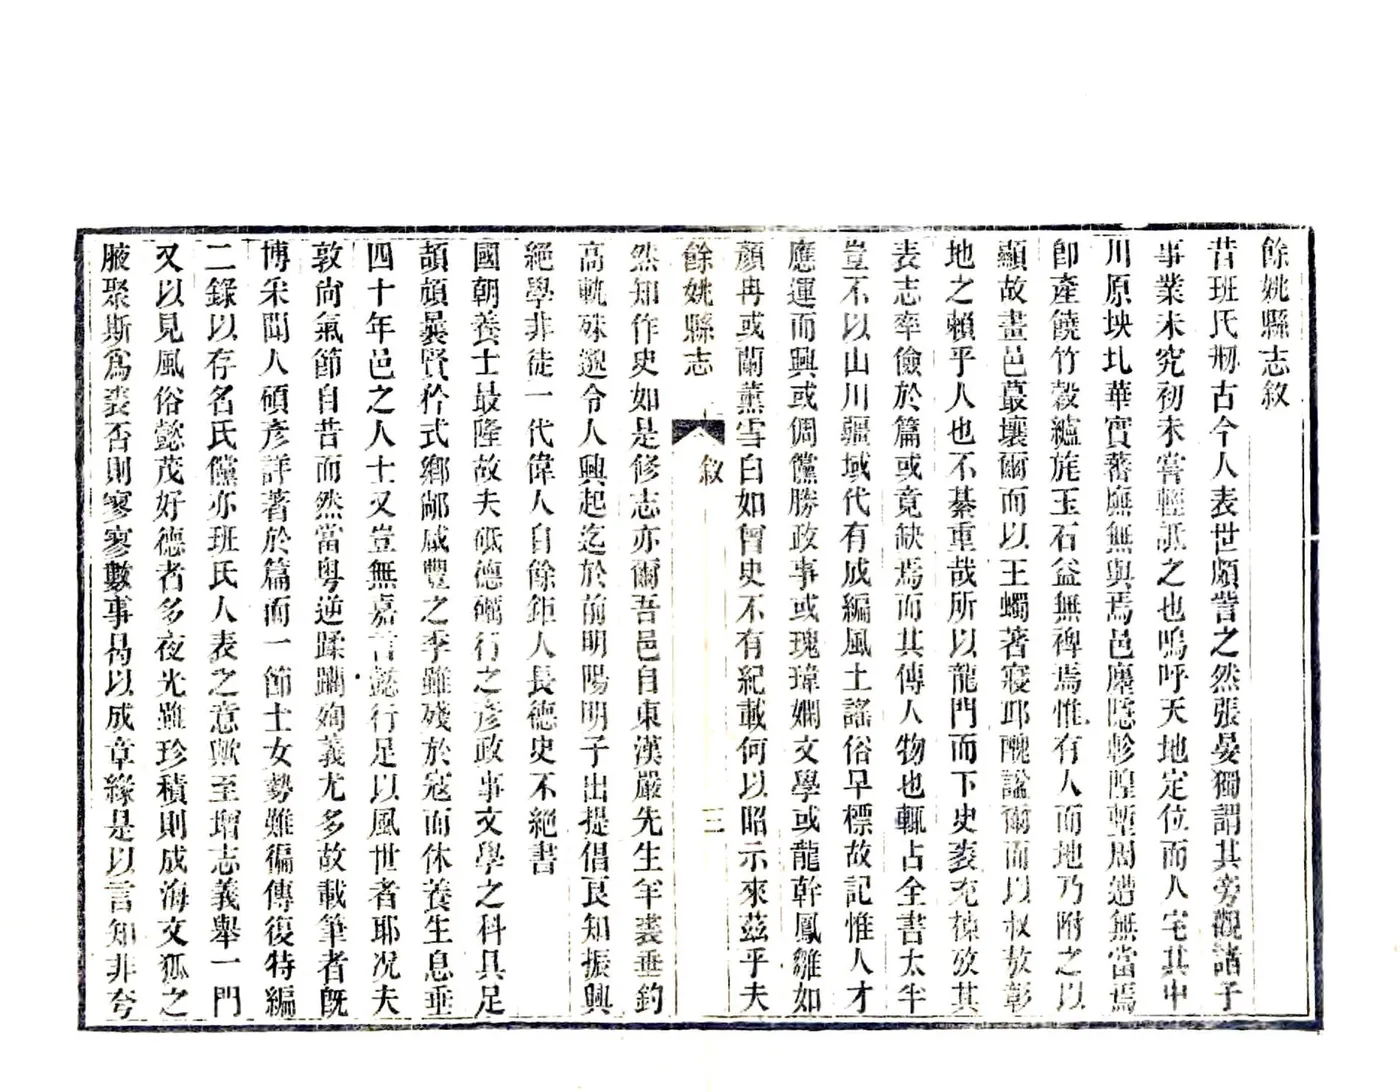 餘姚縣志敘
昔班氏刱古今人表世頗訾之然張晏獨謂其旁觀諸子
事業未究初未嘗輕詆之也嗚呼天地定位而人宅其中
川原坱圠華實蕃廡無與焉邑廛隱軫隍塹周遭無當焉
卽產饒竹穀纑旄玉石益無裨焉惟有人而地乃附之以
顯故畫邑蕞壤爾而以王蠋著寢邱醜諡爾而以叔敖彰
地之賴乎人也不綦重哉所以龍門而下史裘充棟攷其
表志率儉於篇或竟缺焉而其傳人物也輒占全書太半
豈不以山川疆域代有成編風土謠俗早標故記惟人才
應運而興或倜儻勝政事或瑰瑋嫻文學或龍幹鳳雛如
顏冉或蘭薰雪白如曾史不有紀載何以昭示來茲乎夫
餘姚縣志 敘 三
然知作史如是修志亦爾吾邑自東漢嚴先生羊裘垂釣
高軌殊邈令人興起迄於前明陽明子出提倡良知振興
絕學非徒一代偉人自餘鉅人長德史不絕書
國朝養士最隆故夫砥德礪行之彥政事文學之科具足
頡頏曩賢矜式鄉鄙咸豐之季雖殘於寇而休養生息垂
四十年邑之人士又豈無嘉言懿行足以風世者耶况夫
敦尙氣節自昔而然當粤逆蹂躪殉義尤多故載筆者旣
博采聞人碩彥詳著於篇而一節士女勢難徧傳復特編
二錄以存名氏儻亦班氏人表之意歟至增志義舉一門
又以見風俗懿茂好德者多夜光雖珍積則成海文狐之
腋聚斯爲裘否則寥寥數事曷以成章緣是以言知非夸